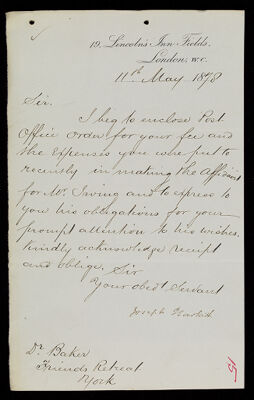 19, Lincoln's Inn Fields,
London, W.C.
11th May 1878
Sir.
I beg to enclose Post
Office Order for your fee and
the expenses you were put to
recently in making the Affidavit
for Mr. Irving and to express to
you his obligations for your
prompt attention to his wishes.
Kindly acknowledge receipt
and oblige, Sir
Your obedt Servant
Joseph
Dr. Baker
Friends Retreat
York